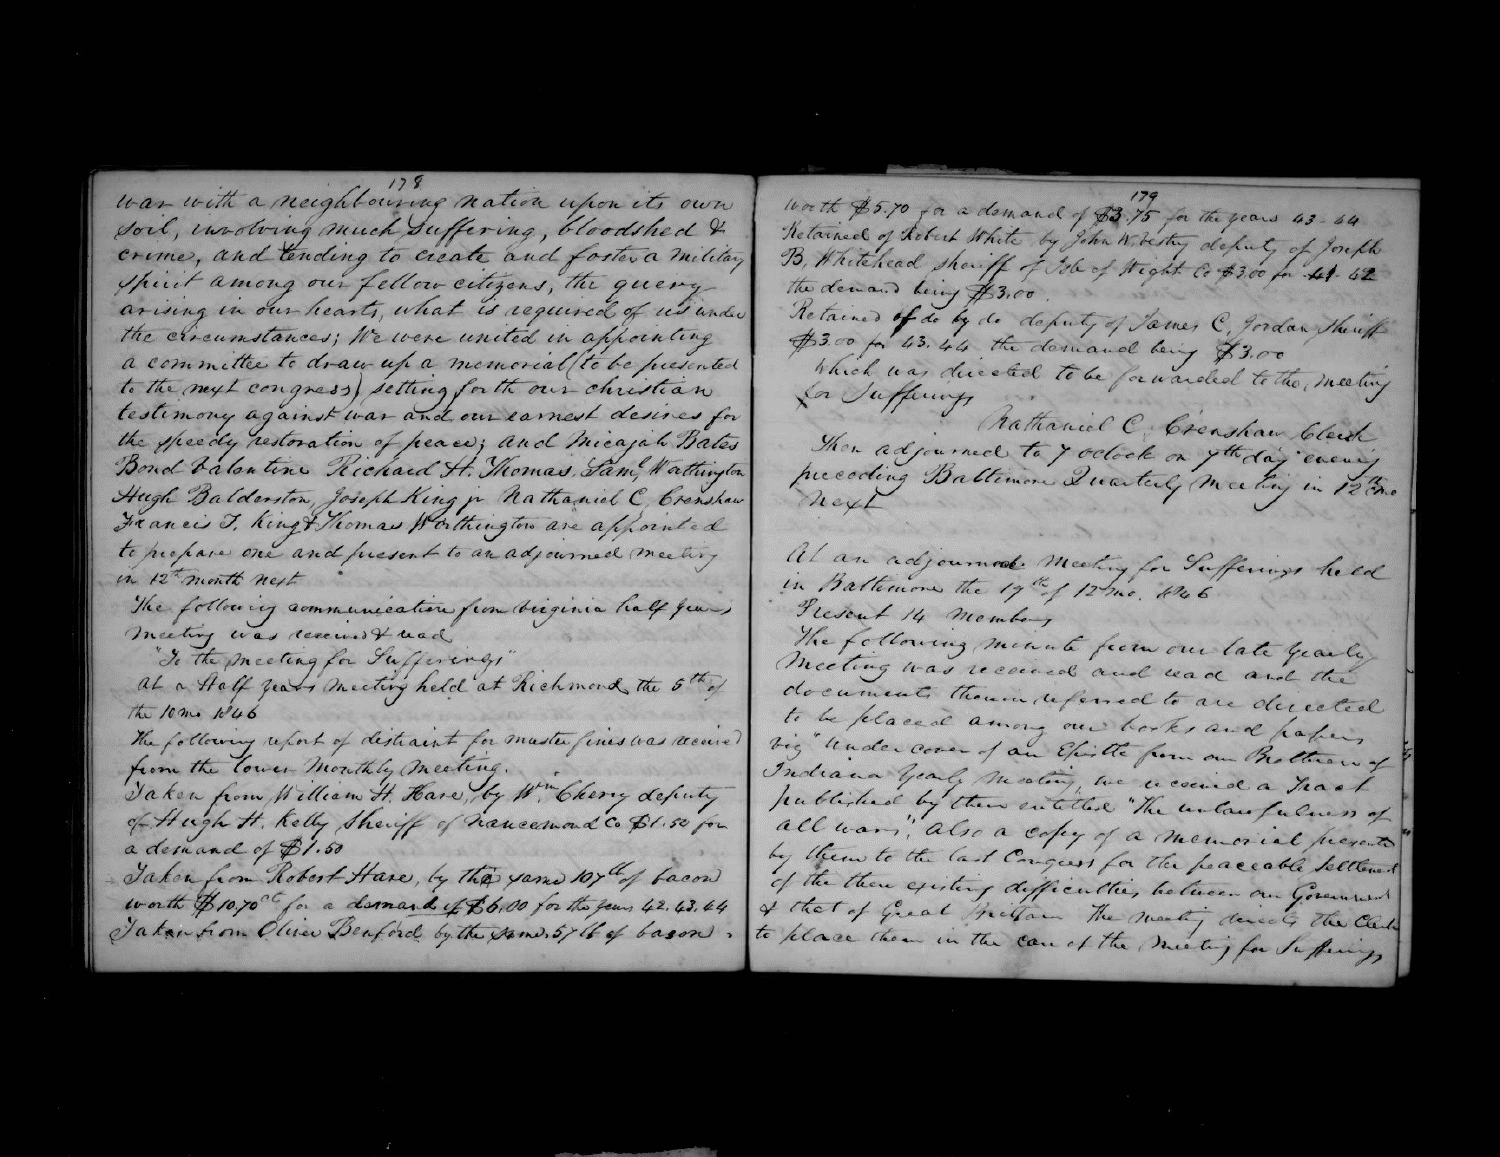 178
war with a neighbouring nation upon its own
soil, involving much suffering, bloodshed &
crime, and tending to create and foster a military
spirit among our fellow citizens, the query
arising in our hearts, what is required of us under
the circumstances; We were united in appointing
a committee to draw up a memorial (to be presented
to the next congress) setting forth our christian
testimony against war and our earnest desires for
the speedy restoration of peace; and Micajah Bates
Bond Valentine Richard H. Thomas, Saml Worthington
Hugh Balderston, Joseph King jr Nathaniel C. Crenshaw
Francis T. King & Thomas Worthington are appointed
to prepare one and present to an adjourned meeting
in 12th month next
The following communication from Virginia half years
meeting was received & read
"To the meeting for Sufferings"
At a Half years meeting held at Richmond the 5th of
the 10 mo 1846
The following report of distraint for muster fines was received
from the lower Monthly Meeting.
Taken from William H. Hare, by Wm Cherry deputy
of Hugh H. Kelly sheriff of Nancemond Co $1.50 for
a demand of $1.50
Taken from Robert Hare, by the same 107 lb of bacon
worth $10.70 cts for a demand of $6.00 for the years 42.43.44
Taken from Oliver Benford by the same 57 lb of bacon
179
worth $5.70 for a demand of $3.75 for the years 43-44
Retained of Robert White by John W. Vestry deputy of Joseph
B. Whitehead sheriff of Isle of Wight Co $3.00 for 41-42
the demand being $3.00.
Retained of do by do deputy of James C. Jordan Sheriff
$3.00 for 43.44 the demand being $3.00
Which was directed to be forwarded to the meeting
for Sufferings
Nathaniel C. Crenshaw Clerk
Then adjourned to 7 oclock on 7th day evening
preceding Baltimore Quarterly Meeting in 12th mo
next
At an adjourned Meeting for Sufferings held
in Baltimore the 19th of 12 mo. 1846
Present 14 members
The following minute from our late Yearly
Meeting was received and read and the
documents therein referred to are directed
to be placed among our books and papers
viz "Under cover of an Epistle from our Brethren of
Indiana Yearly Meeting, we received a Tract
published by them entitled "The unlawfulness of
all wars", also a copy of a memorial presented
by them to the last Congress for the peaceable Settlement
of the then existing difficulties between our Government
& that of Great Brittain The meeting directs the Clerk
to place them in the care of the Meeting for Sufferings